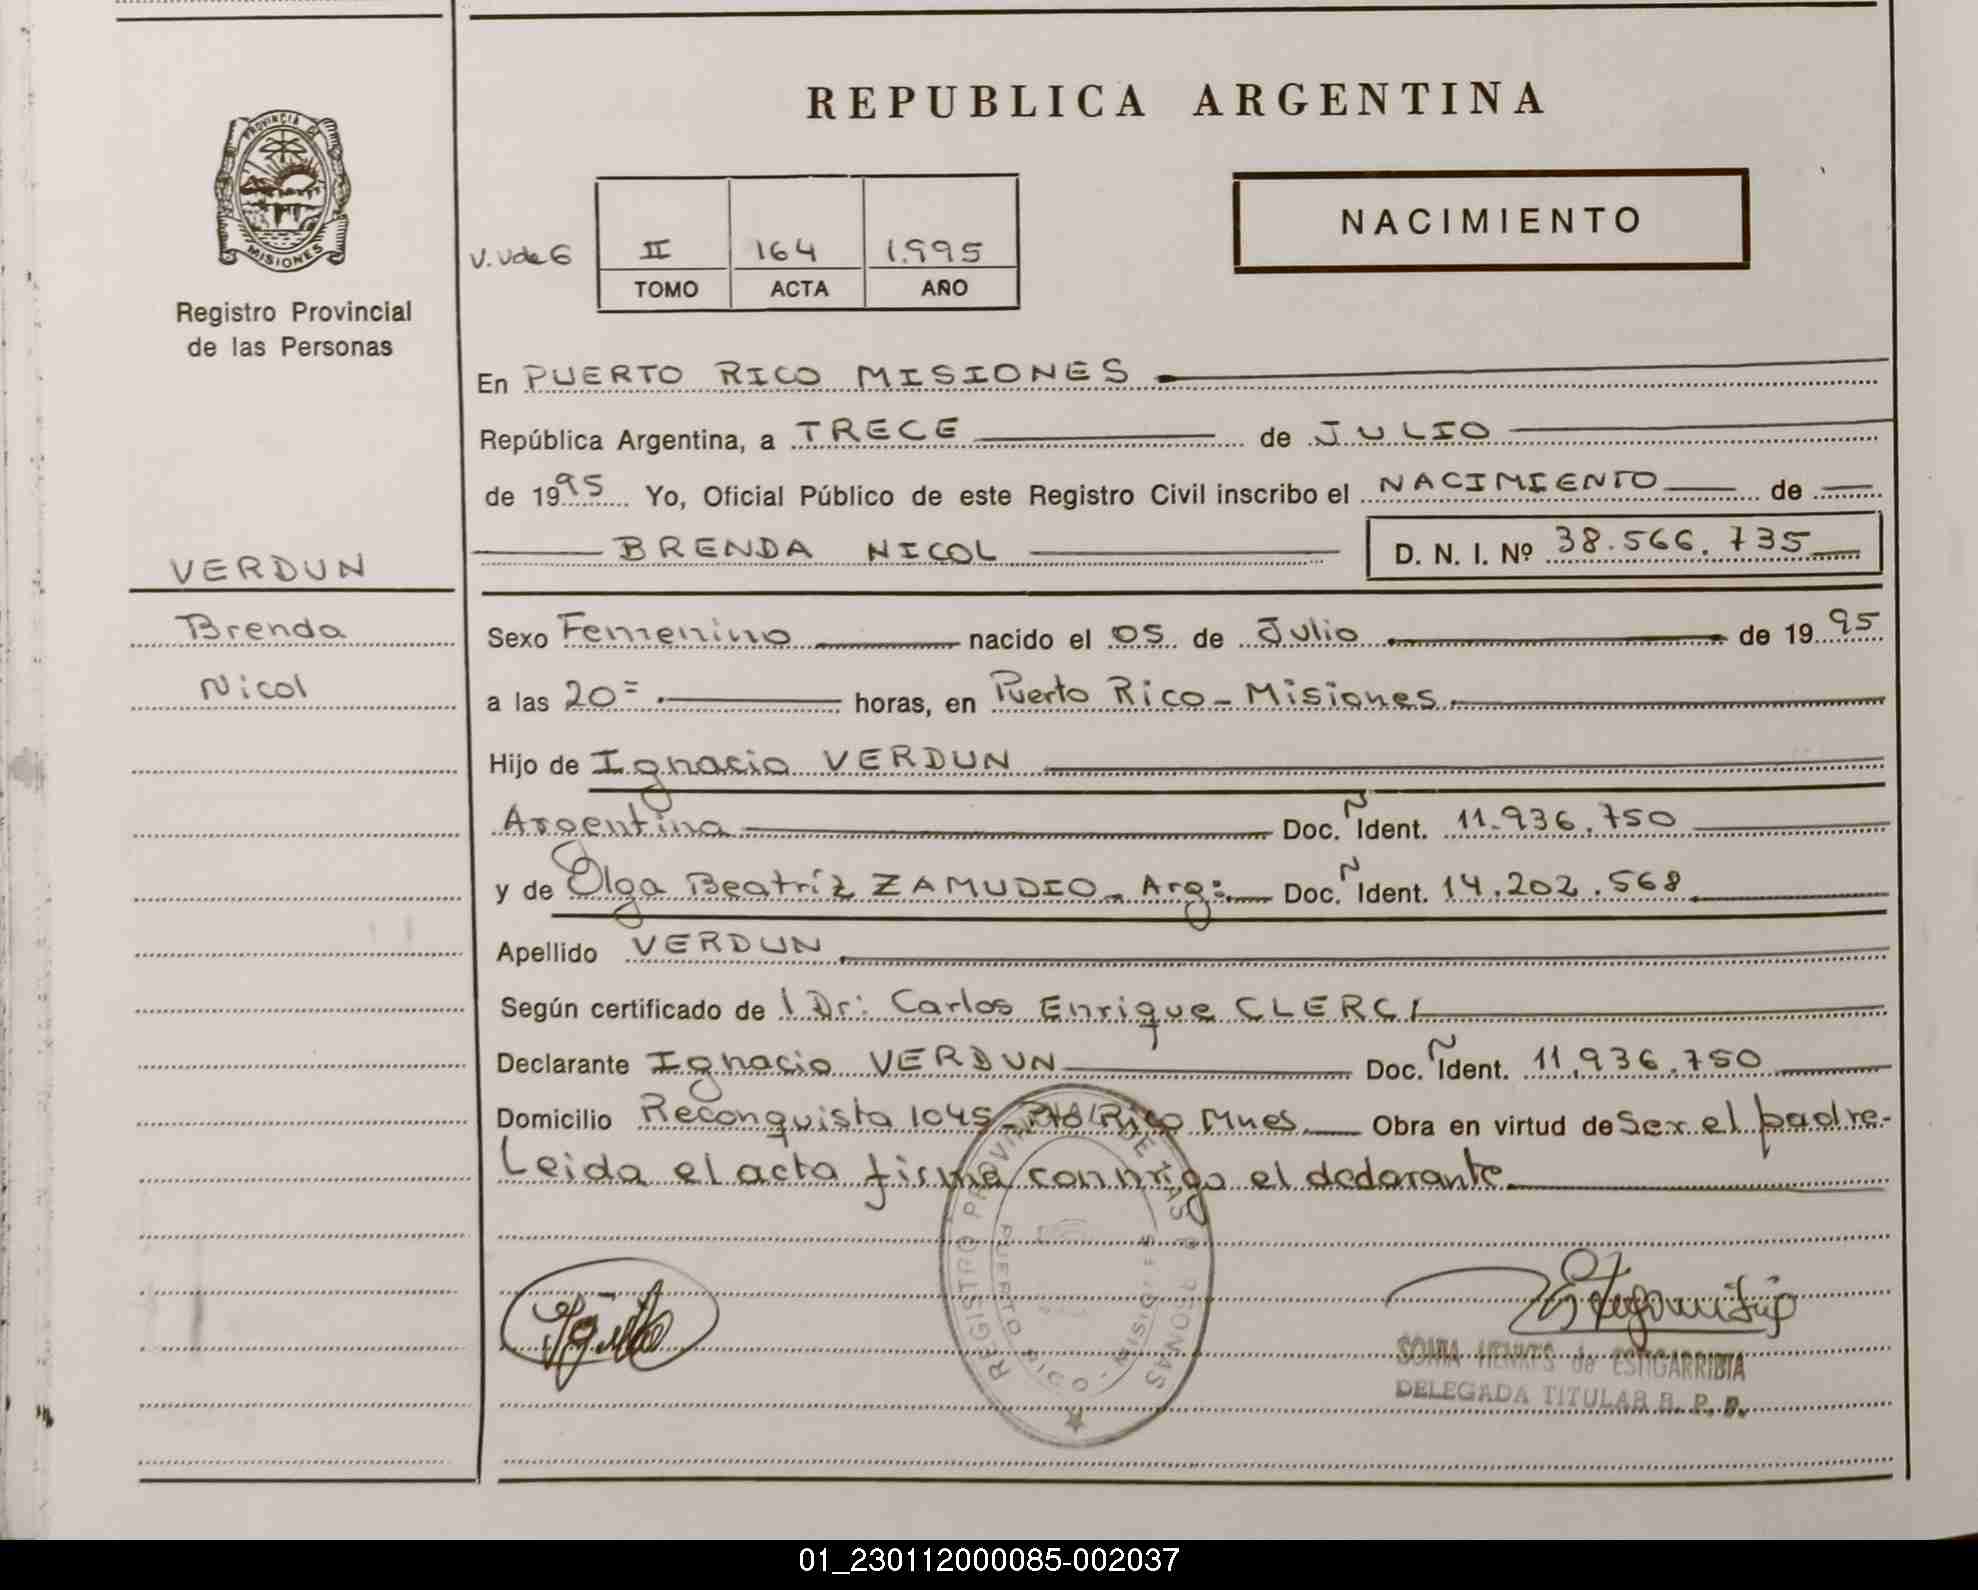 REPUBLICA ARGENTINA
PROVINCIA DE
MISIONES
Registro Provincial
de las Personas
NACIMIENTO
II 164 1.995
TOMO ACTA AÑO
En PUERTO RICO MISIONES
República Argentina, a TRECE de JULIO
de 1995 Yo, Oficial Público de este Registro Civil inscribo el NACIMIENTO de
BRENDA NICOL D. N. I. Nº 38.566.735
VERDUN
Brenda
Nicol
Sexo Femenino nacido el 05 de Julio de 1995
a las 20= horas, en Puerto Rico - Misiones
Hijo de Ignacio VERDUN
Argentina Doc. Ñ Ident. 11.936.750
y de Olga Beatríz ZAMUDIO - Arg: Doc. Ñ Ident. 14.202.568
Apellido VERDUN
Según certificado de l Dr: Carlos Enrique CLERCI
Declarante Ignacio VERDUN Doc. Ñ Ident. 11.936.750
Domicilio Reconquista 1045 - Pto Rico Mnes Obra en virtud de Ser el padre-
Leida el acta firma conmigo el declarante
REGISTRO PROVINCIAL DE LAS PERSONAS
PUERTO RICO - MISIONES
de ESTIGARRIBIA
DELEGADA TITULAR R. P. P.
01_230112000085-002037